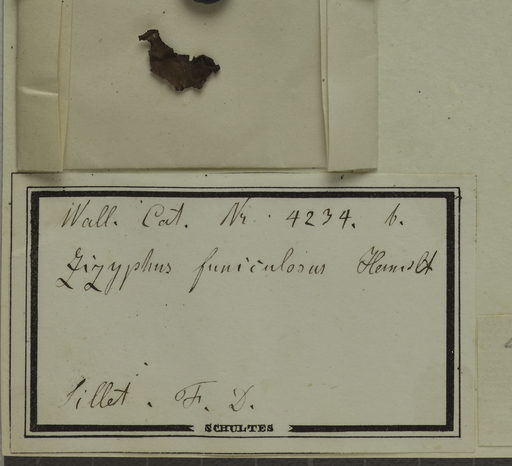 Wall. Cat. Nr. 4234. b.
Zizyphus funiculosus Hamilt
Sillet. F. D.
SCHULTES